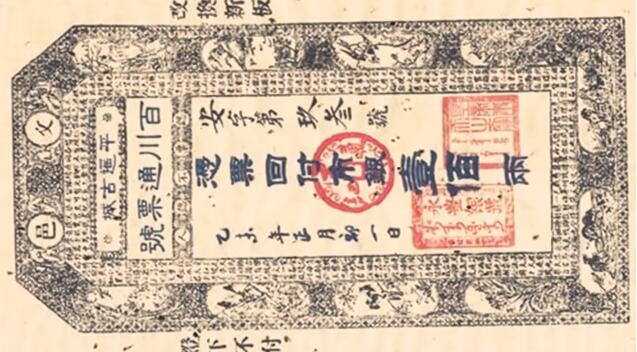 改換新板
邑
平遥古城
百川通票號
安字第玖叁號
憑票回付市銀壹佰兩
乙未年正月初一日
下不付